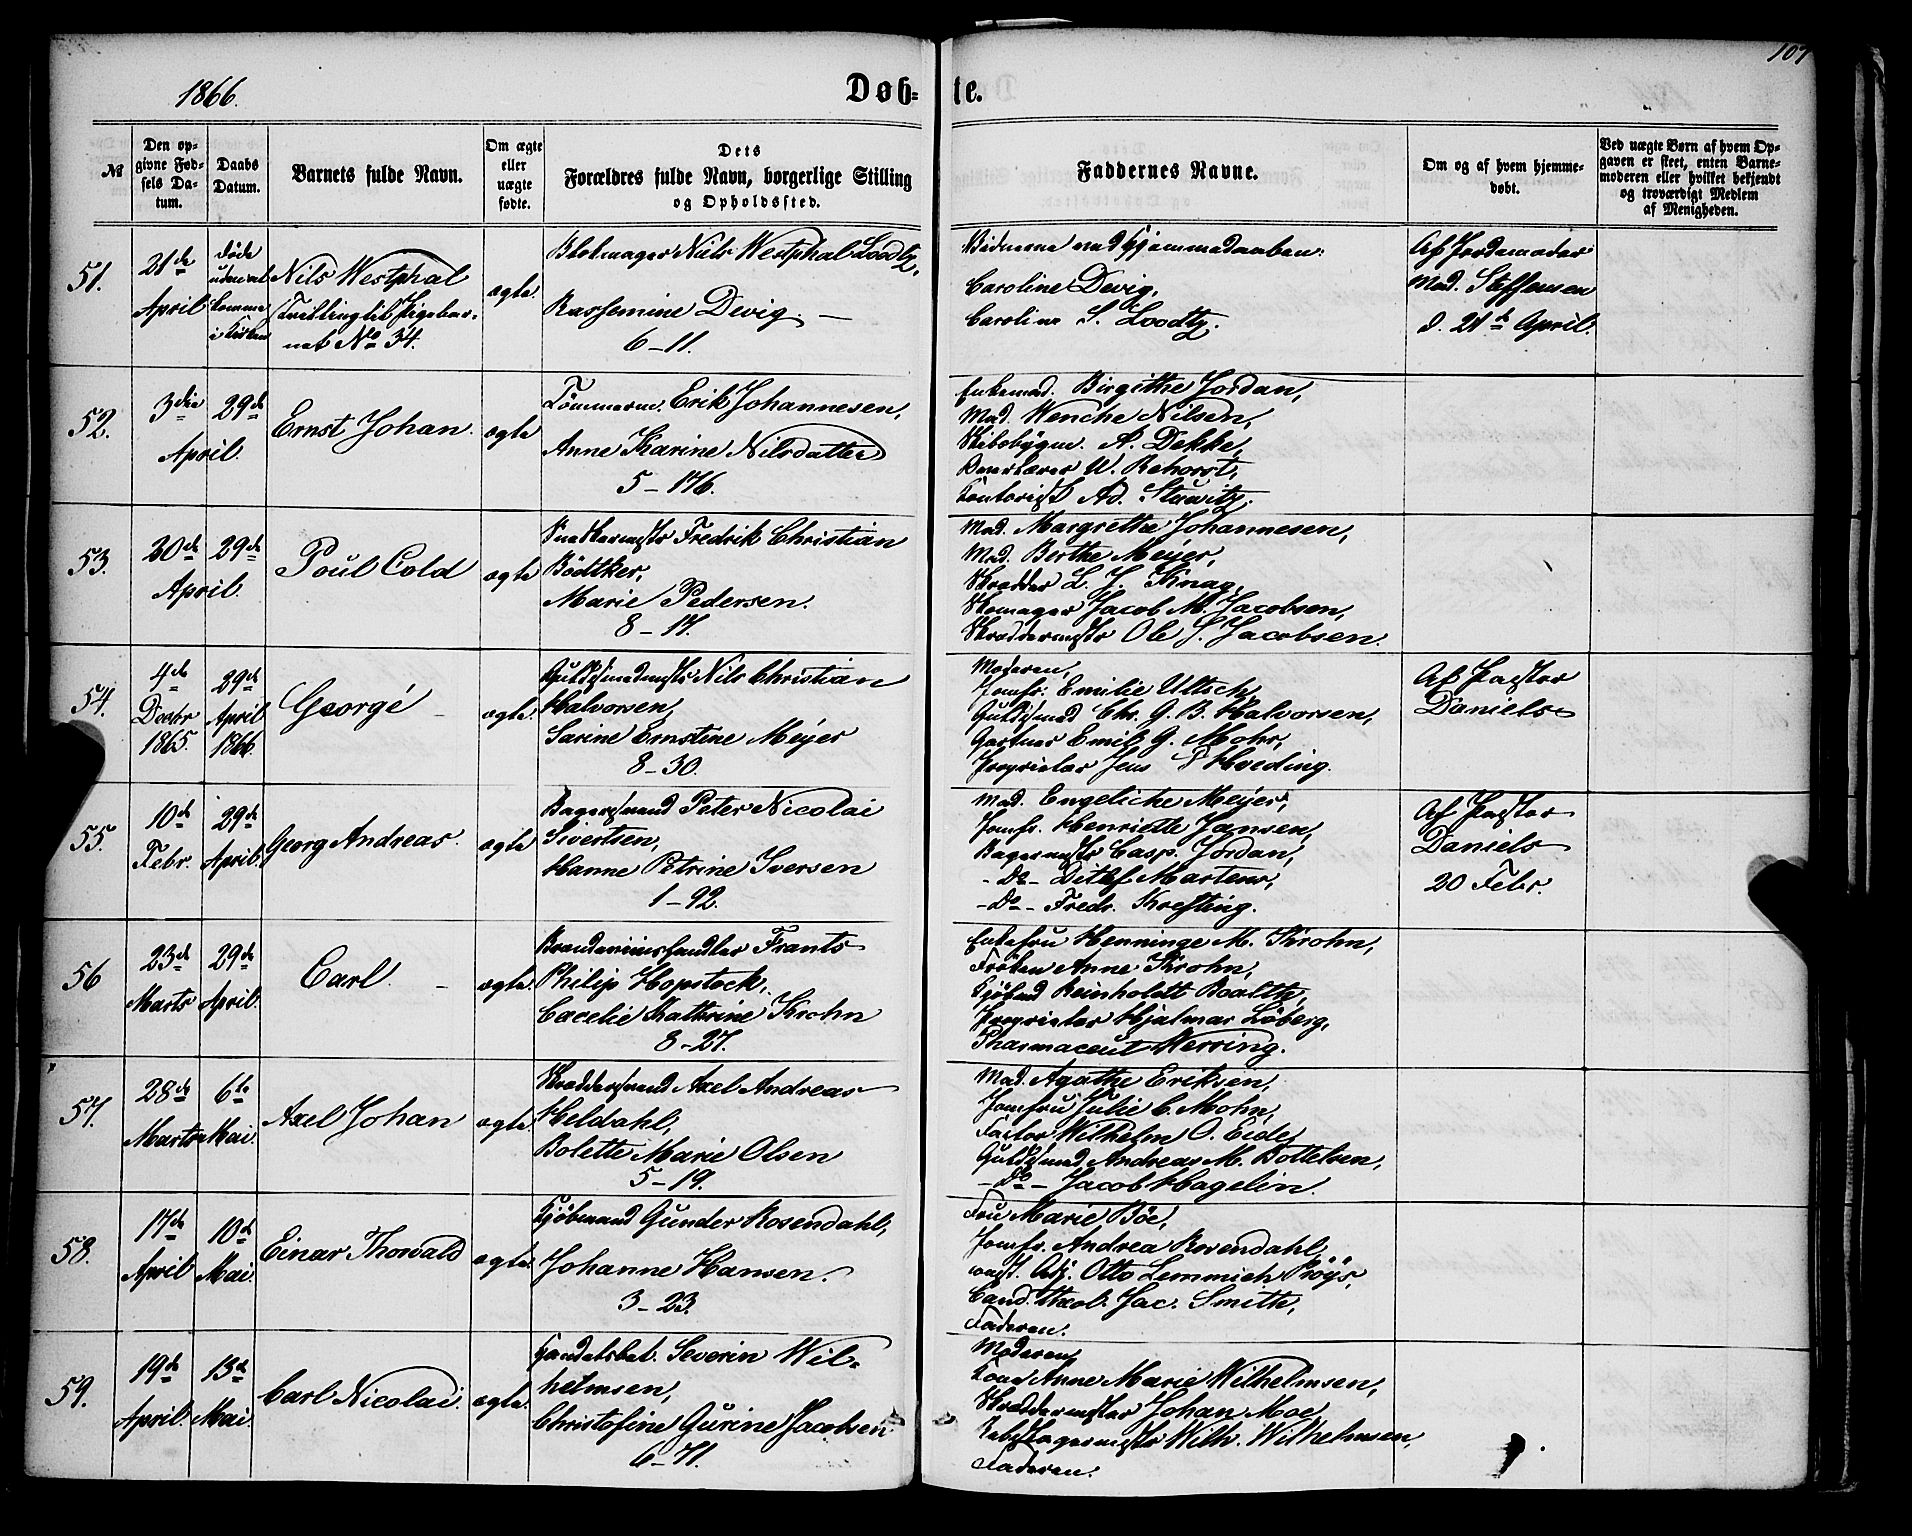 107
1866.
Døb-te.
№
Den op-
givne Fød-
sels Da-
tum.
Daabs
Datum.
Barnets fulde Navn.
Om ægte
eller
uægte
fødte.
Dets
Forældres fulde Navn, borgerlige Stilling
og Opholdssted.
Faddernes Navne.
Om og af hvem hjemme-
døbt.
Ved uægte Børn af hvem Op-
gaven er skeet, enten Barne-
moderen eller hvilket bekjendt
og troværdigt Medlem
af Menigheden.
51.
21de
April
Døde
uden at
komme
i Kirken
Nils Westphal
Tvilling til Pigebar-
net No 34.
ægte.
Blokmager Niels Westphal Loodtz,
Rassemine Devig.
6-11.
Vidnerne ved Hjemmedaaben:
Caroline Devig,
Caroline S. Loodtz.
Af Jordemoder
Mad. Steffensen
d. 21de April.
52.
3die
April.
29de
Ernst Johan.
ægte
Tømmerm. Erik Johannesen,
Anne Karine Nilsdatter
5-176.
Enkemad. Birgithe Jordan,
Mad. Wenche Nilsen,
Skibsbygm. A. Dekke,
W. Rehorst,
Contorist Ad. Stuwitz.
53.
20de
April.
29de
Poul Cold
ægte
Snedkermstr Fredrik Christian
Bödtker,
Marie Pedersen.
8-17.
Mad. Margrethe Johannesen,
Mad. Berthe Meyer,
Skrædder L. J. Knag,
Skomager Jacob M. Jacobsen,
Skræddermstr Ole J. Jacobsen.
54.
4de
Decbr
1865.
29de
April
1866.
Georgé
ægte.
Guldsmedmstr Nils Christian
Halvorsen,
Sarine Ernstine Meyer
8-30.
Moderen,
Jomfr. Emilie Ultsch,
Guldsmed Chr. G. B. Halvorsen,
Gartner Emil G. Mohr,
Proprietær Jens Hveding.
Af Pastor
Daniels
55.
10de
Febr.
29de
April.
Georg Andreas.
ægte
Bagersvend Peter Nicolai
Sivertsen,
Hanne Petrine Iversen
1-92.
Mad. Engeliche Meyer,
Jomfr. Henriette Jansen,
Bagermstr Casp. Jordan,
-Do- Ditlef Martens,
-Do- Fredr. Krefting.
Af Pastor
Daniels
20 Febr.
56
23de
Marts
29de
April.
Carl.
ægte.
Brændeviinshandler Frants
Philip Hopstock,
Cacelie Kathrine Krohn
8-27.
Enkefru Henninge M. Krohn,
Frøken Anne Krohn,
Kjøbmd Reinholdt Boalth,
Proprietær Hjalmar Löberg,
Pharmaceut Werring.
57.
28de
Marts
6te
Mai.
Axel Johan
ægte.
Skræddersvend Axel Andreas
Heldahl,
Bolette Marie Olsen
5-19.
Mad. Agathe Eriksen,
Jomfru Julie C. Mohn,
Factor Wilhelm O. Eide,
Guldsmed Andreas M. Bottelsen,
-Do- Jacob Hagelin.
58.
17de
April
10de
Mai.
Einar Thorvald
ægte.
Kjøbmand Gunder Rosendahl,
Johanne Hansen.
3-23.
Fru Marie Böe,
Jomfr. Andrea Rosendahl,
const. Adj. Otto Lemmich Pröys,
Cand. theol. Jac. Smith,
Faderen.
59.
19de
April.
13de
Mai.
Carl Nicolai.
ægte.
Handelsbet. Severin Wil-
helmsen,
Christofine Gurine Jacobsen
6-71.
Moderen,
Kone Anne Marie Wilhelmsen,
Skræddermester Johan Moe,
Rebslagermstr Wilh. Wilhelmsen,
Faderen.